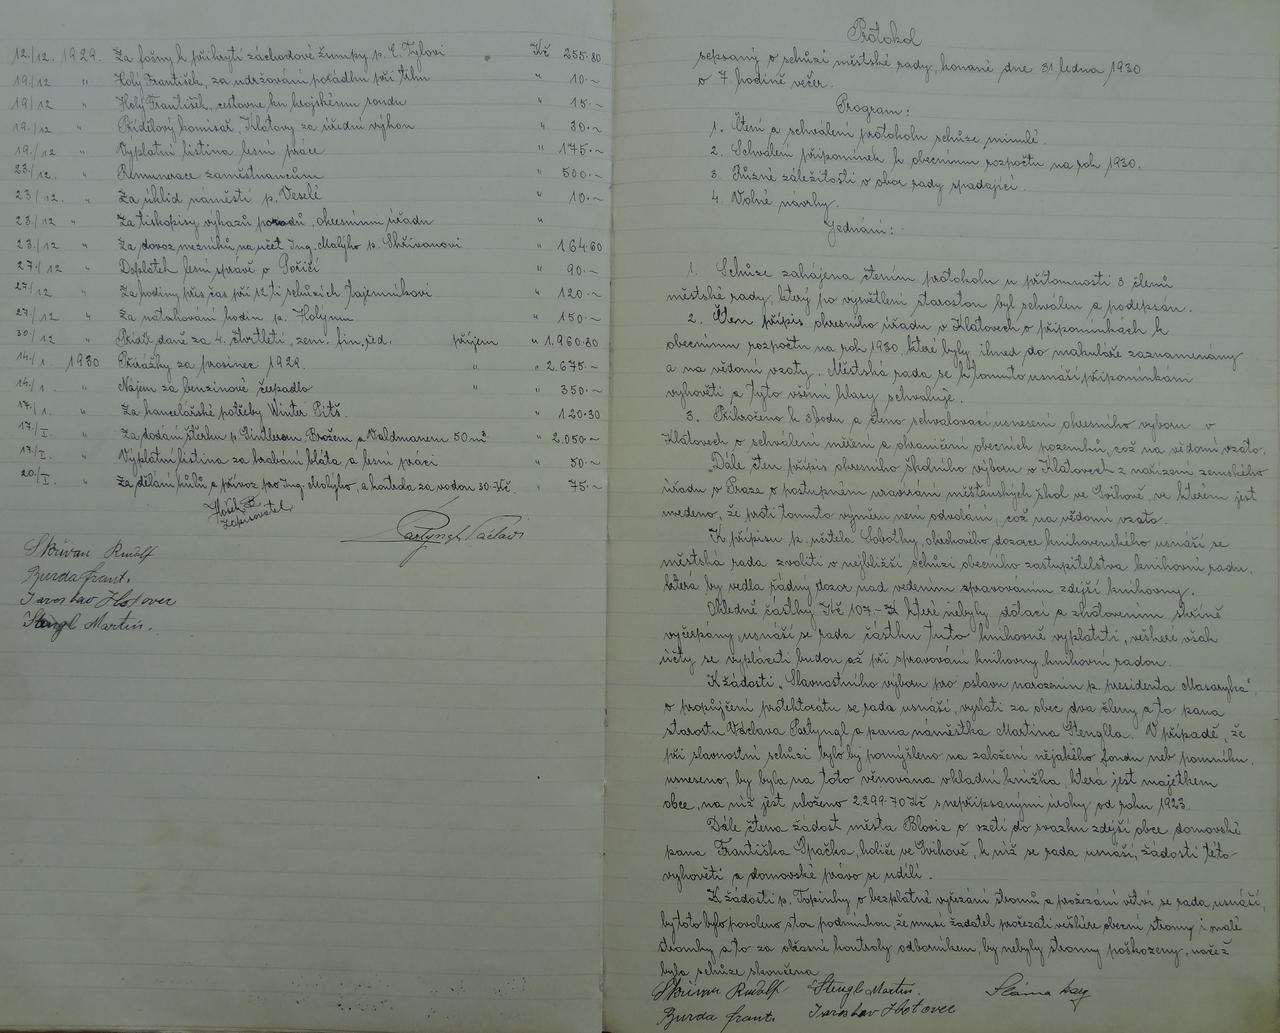 12./12. 1929. Za fošny k přikrytí záchodové žumpy p. E. Tylovi Kč 255·80
19/12 " Holý František, za udržování pořádku při trhu " 10·~
19/12 " Holý František, cestovné ku krajskému soudu " 15·~
19./12 " Přídělový komisař, Klatovy za úřední výkon " 30·~
19./12 " Výplatní listina lesní práce " 175·~
23./12. " Remunerace zaměstnancům " 500·~
23/12. " Za úklid náměstí p. Veselé " 10·~
23/12 " Za tiskopisy výkazů pořadů, okresnímu úřadu "
23./12 " Za dovoz mezníků na účet Ing. Malýho p. Skřivanovi " 164·60
27./12 " Doplatek lesní správě v Poříčí " 90·~
27/12 " Za hodiny přes čas při 12ti schůzích tajemníkovi " 120·~
27/12 " Za natahování hodin p. Holýmu " 150·~
30./12 " Příděl daně za 4. čtvrtletí, zem. fin. řed. příjem " 1.960·80
14./1. 1930 Přirážky za prosinec 1929. " " 2.675·~
14/1. " Nájem za benzinové čerpadlo " " 350·~
17./1. " Za kancelářské potřeby Winter Piš. " 120·30
17./I. " Za dodání štěrku p. Ginllerem, Brožem a Valdmanem 50 m³ " 2.050·~
17./I. " Výplatní listina za hrabání bláta a lesní práci " 50·~
20./I. " Za dělání kůlů a přívoz pro Ing. Malýho, a kontrola za vodou 30·Kč. " 75·~
zapisovatel
Partyngl Václav
Skřivan Rudolf
Burda Frant.
Jaroslav Hotovec
Stengl Martin.
Protokol
sepsaný o schůzi městské rady, konané dne 31. ledna 1930
o 7 hodině večer.
Program:
1. Čtení a schválení protokolu schůze minulé.
2. Schválení připomínek k obecnímu rozpočtu na rok 1930.
3. Různé záležitosti v obor rady spadající.
4. Volné návrhy.
Jednání:
1. Schůze zahájena čtením protokolu u přítomnosti 3 členů
městské rady, který po vysvětlení starostou byl schválen a podepsán.
2. Čten přípis okresního úřadu v Klatovech o připomínkách k
obecnímu rozpočtu na rok 1930, které byly ihned do makuláře zaznamenány
a na vědomí vzaty. Městská rada se k tomuto usnáší, připomínkám
vyhověti a tyto všemi hlasy schvaluje.
3. Přikročeno k 3 bodu a čteno schvalovací usnesení okresního výboru v
Klatovech o schválení měření a ohraničení obecních pozemků, což na vědomí vzato.
Dále čten přípis okresního školního výboru v Klatovech z nařízení zemského
úřadu v Praze o postupném uzavírání měšťanských škol ve Švihově, ve kterém jest
uvedeno, že proti tomuto výměru není odvolání, což na vědomí vzato.
K přípisu p. učitele Sobotky, okrskového dozorce knihovnického usnáší se
městská rada zvoliti v nejbližší schůzi obecního zastupitelstva knihovní radu,
která by vedla řádný dozor nad vedením spravováním zdejší knihovny.
Ohledně částky Kč 107·- které nebyly dotací a zhotovením skříně
vyčerpány, usnáší se rada částku tuto knihovně vyplatiti, veškeré však
účty se vypláceti budou až při spravování knihovny knihovní radou.
K žádosti „Slavnostního výboru pro oslavu narozenin p. presidenta Masaryka",
o propůjčení protektorátu se rada usnáší, vyslati za obec dva členy a to pana
starostu Václava Partyngl a pana náměstka Martina Stenglla. V případě, že
při slavnostní schůzi bylo by pomýšleno na založení nějakého fondu neb pomníku,
usneseno, by byla na toto věnována vkladní knížka, která jest majetkem
obce, na níž jest uloženo 2.299·70 Kč s nepřipsanými úroky od roku 1923.
Dále čtena žádost města Blovic o vzetí do svazku zdejší obce domovské
pana Františka Špačka, holiče ve Švihově, k níž se rada usnáší, žádosti této
vyhověti a domovské právo se udílí.
K žádosti p. Topinky o bezplatné vyřezání stromů a prořezání větví se rada usnáší,
by toto bylo povoleno s tou podmínkou, že musí žadatel prořezati veškéře obecní stromy i malé
stromky a to za občasné kontroly odborníkem, by nebyly stromy poškozeny, načež
byla schůze skončena.
Skřivan Rudolf Stengl Martin.
Burda Frant. Jaroslav Hotovec